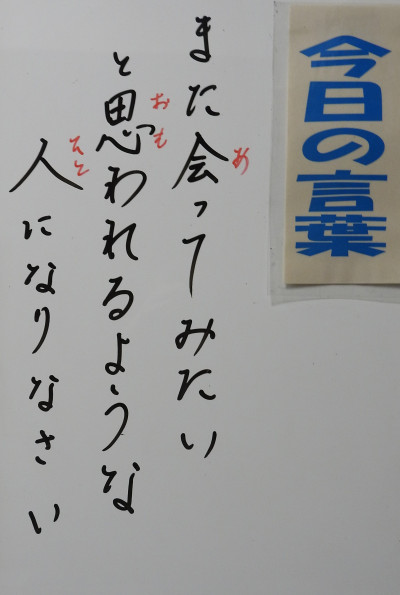 今日の言葉
また会ってみたい
あ
と思われるような
おも
人になりなさい